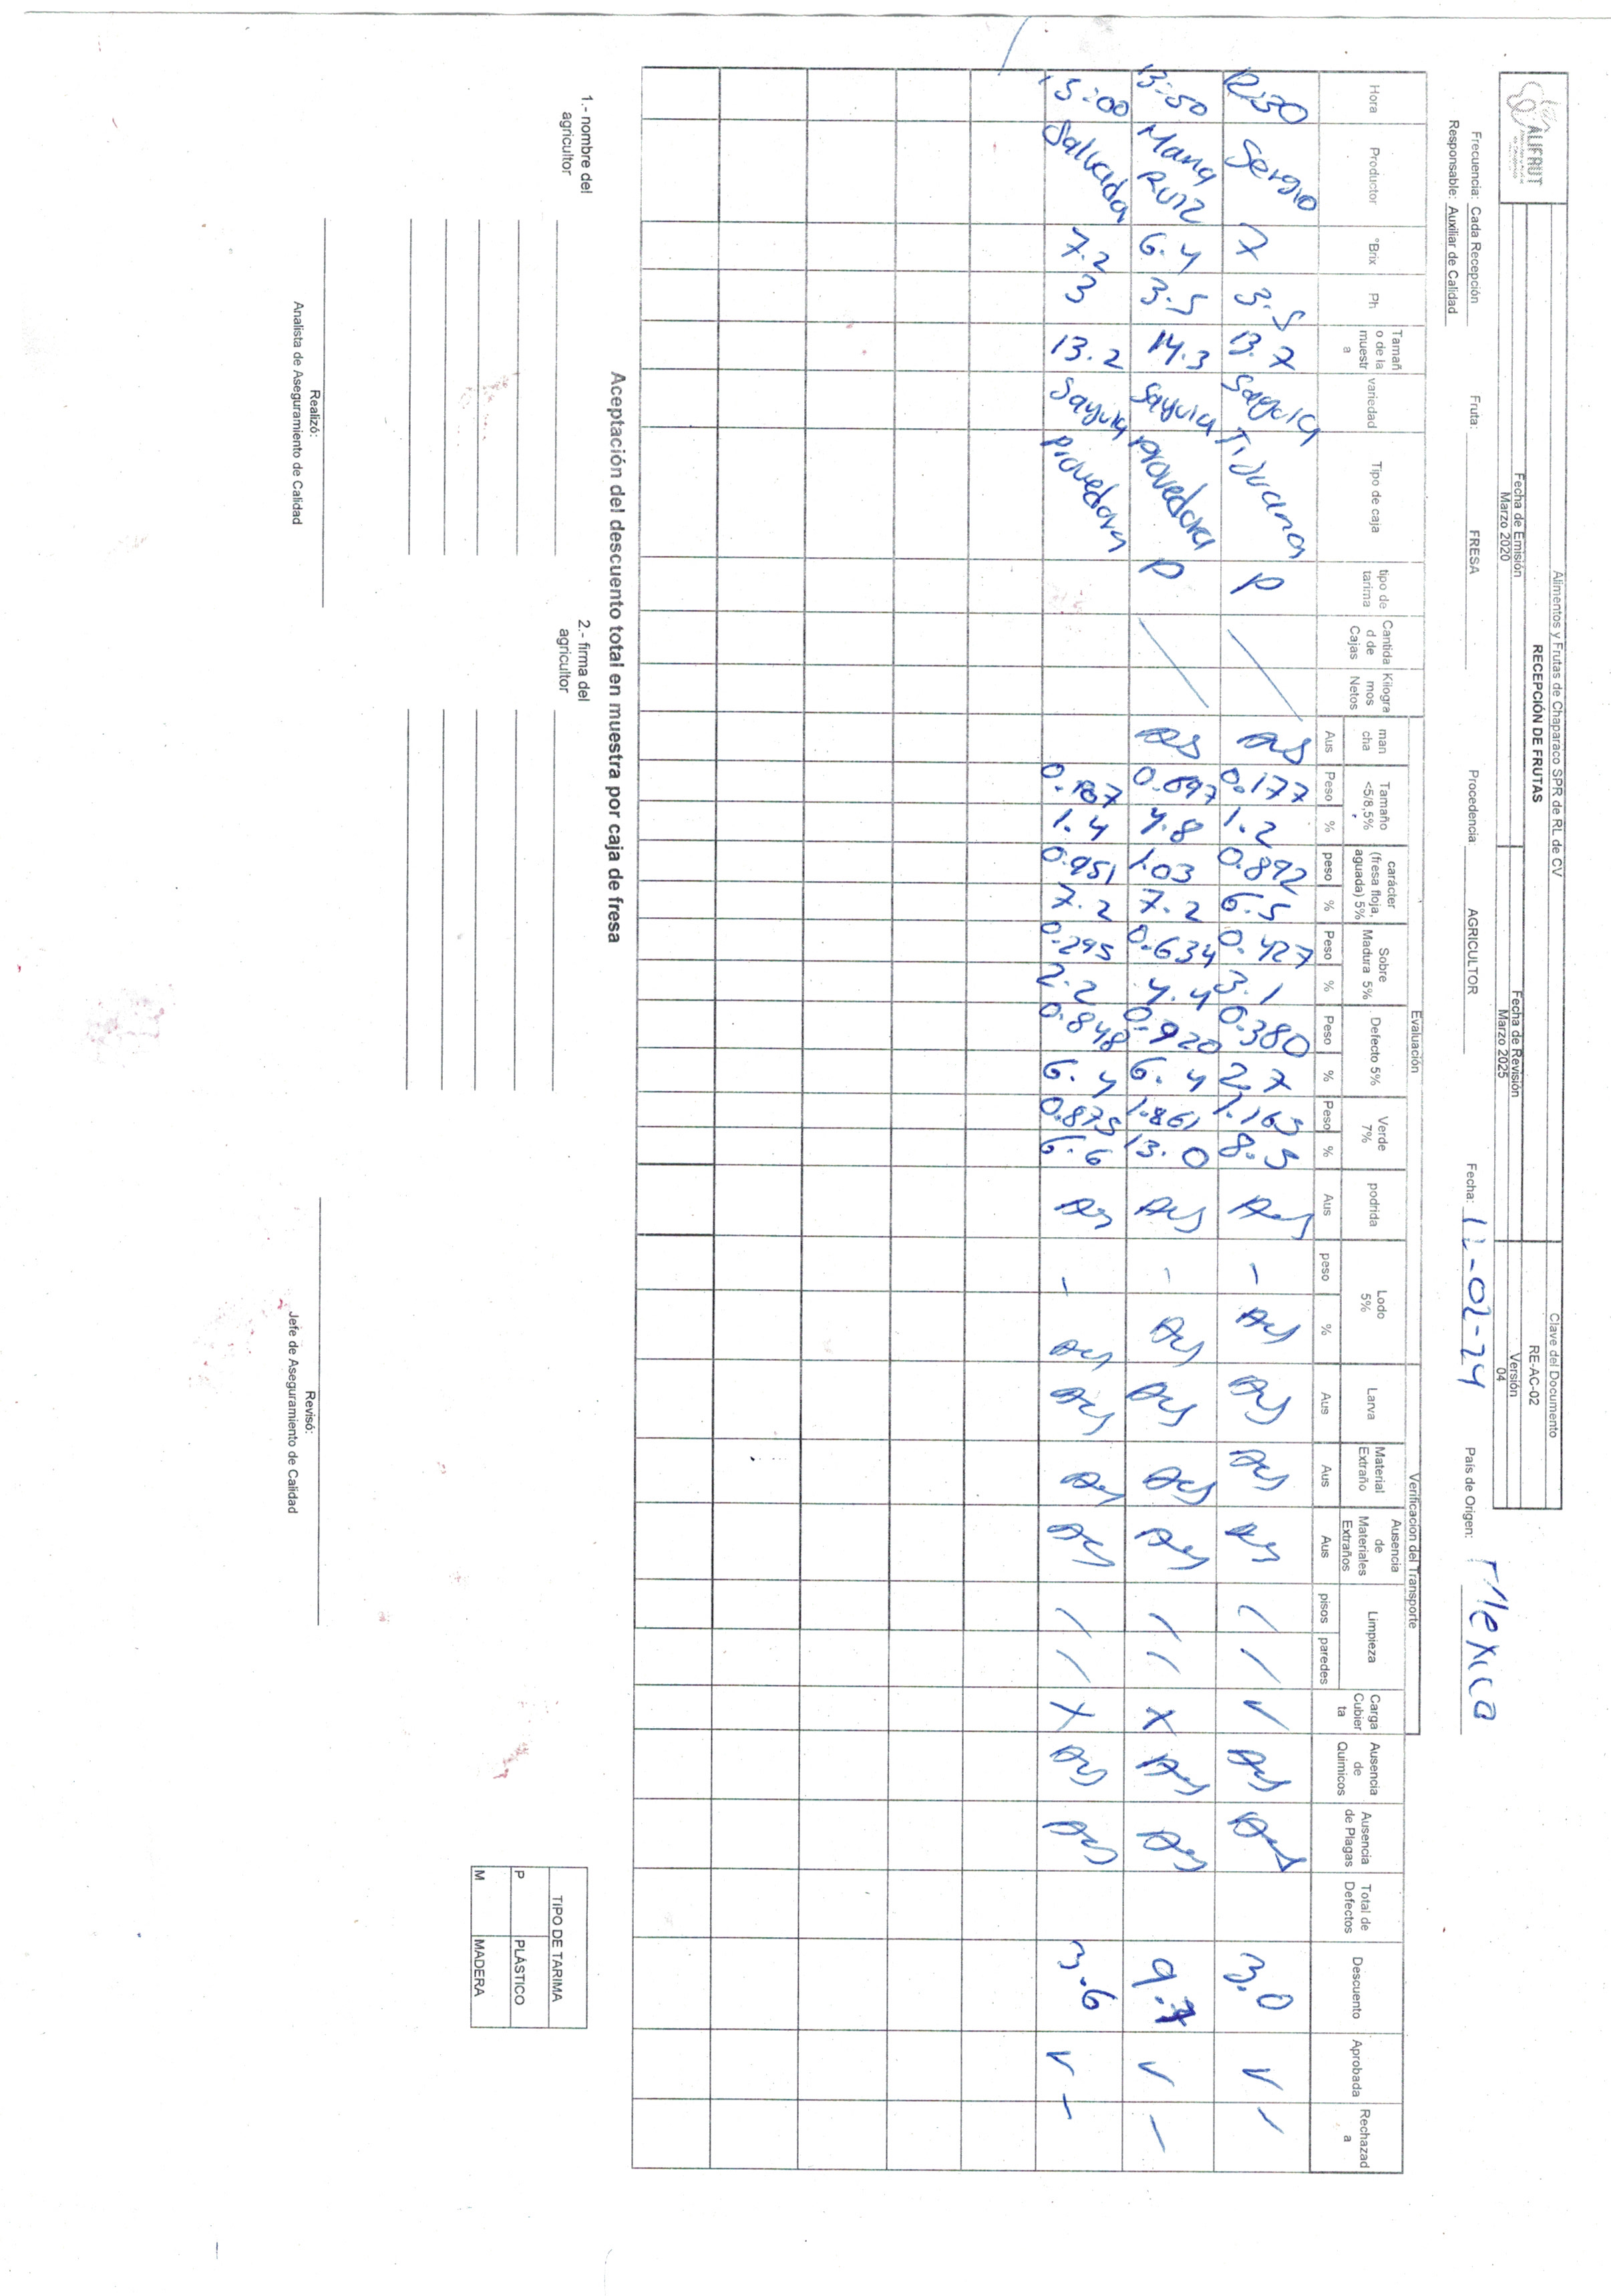 ALIFRUT
Alimentos y Frutas de Chaparaco SPR de RL de CV
RECEPCIÓN DE FRUTAS
Fecha de Emisión
Marzo 2020
Fecha de Revisión
Marzo 2025
Clave del Documento
RE-AC-02
Versión
04
Frecuencia: Cada Recepción Fruta: FRESA Procedencia: AGRICULTOR Fecha: 12-02-24 País de Origen: Mexico
Responsable: Auxiliar de Calidad
Evaluación Verificacion del Transporte
Hora Productor °Brix Ph Tamañ o de la muestr a variedad Tipo de caja tipo de tarima Cantida d de Cajas Kilogra mos Netos man cha Tamaño <5/8,5% carácter (fresa floja, aguada) 5% Sobre Madura 5% Defecto 5% Verde 7% podrida Lodo 5% Larva Material Extraño Ausencia de Materiales Extraños Limpieza Carga Cubier ta Ausencia de Quimicos Ausencia de Plagas Total de Defectos Descuento Aprobada Rechazad a
Aus Peso % peso % Peso % Peso % Peso % Aus peso % Aus Aus Aus pisos paredes
12:30 Sergio 7 3.5 13.7 Tijuana P Aus 0.177 1.2 0.892 6.5 0.427 3.1 0.380 2.7 1.165 8.5 Aus - Aus Aus Aus Aus / / ✓ Aus Aus 3.0 ✓ -
13:50 Maria Ruiz 6.4 3.5 14.3 provedora P Aus 0.697 4.8 1.03 7.2 0.634 4.4 0.920 6.4 1.861 13.0 Aus - Aus Aus Aus Aus / / X Aus Aus 9.7 ✓ -
15:00 Salucida 7.2 3 13.2 Provedora 0.187 1.4 0.951 7.2 0.295 2.2 0.848 6.4 0.875 6.6 Aus - Aus Aus Aus Aus / / X Aus Aus 3.6 ✓ -
Aceptación del descuento total en muestra por caja de fresa
1.- nombre del agricultor
2.- firma del agricultor
TIPO DE TARIMA
P PLÁSTICO
M MADERA
Realizó:
Analista de Aseguramiento de Calidad
Revisó:
Jefe de Aseguramiento de Calidad